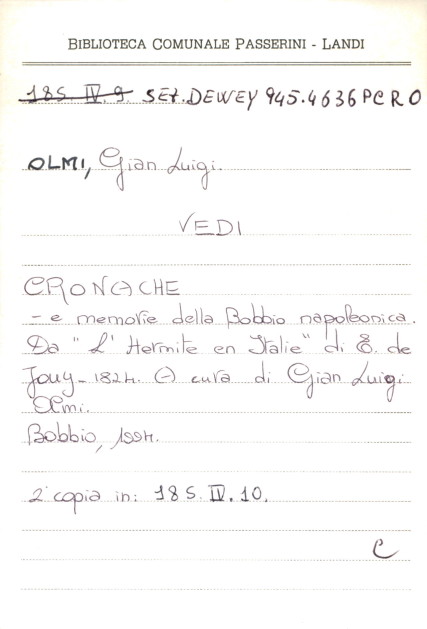 BIBLIOTECA COMUNALE PASSERINI - LANDI
185. IV. 9. SEZ. DEWEY 945.4636 PCRO
OLMI, Gian Luigi.
VEDI
CRONACHE
- e memorie della Bobbio napoleonica.
Da "L' Hermite en Italie" di E. de
Jouy - 1824. A cura di Gian Luigi
Olmi.
Bobbio, 1994.
2ª copia in: 185. IV. 10.
C